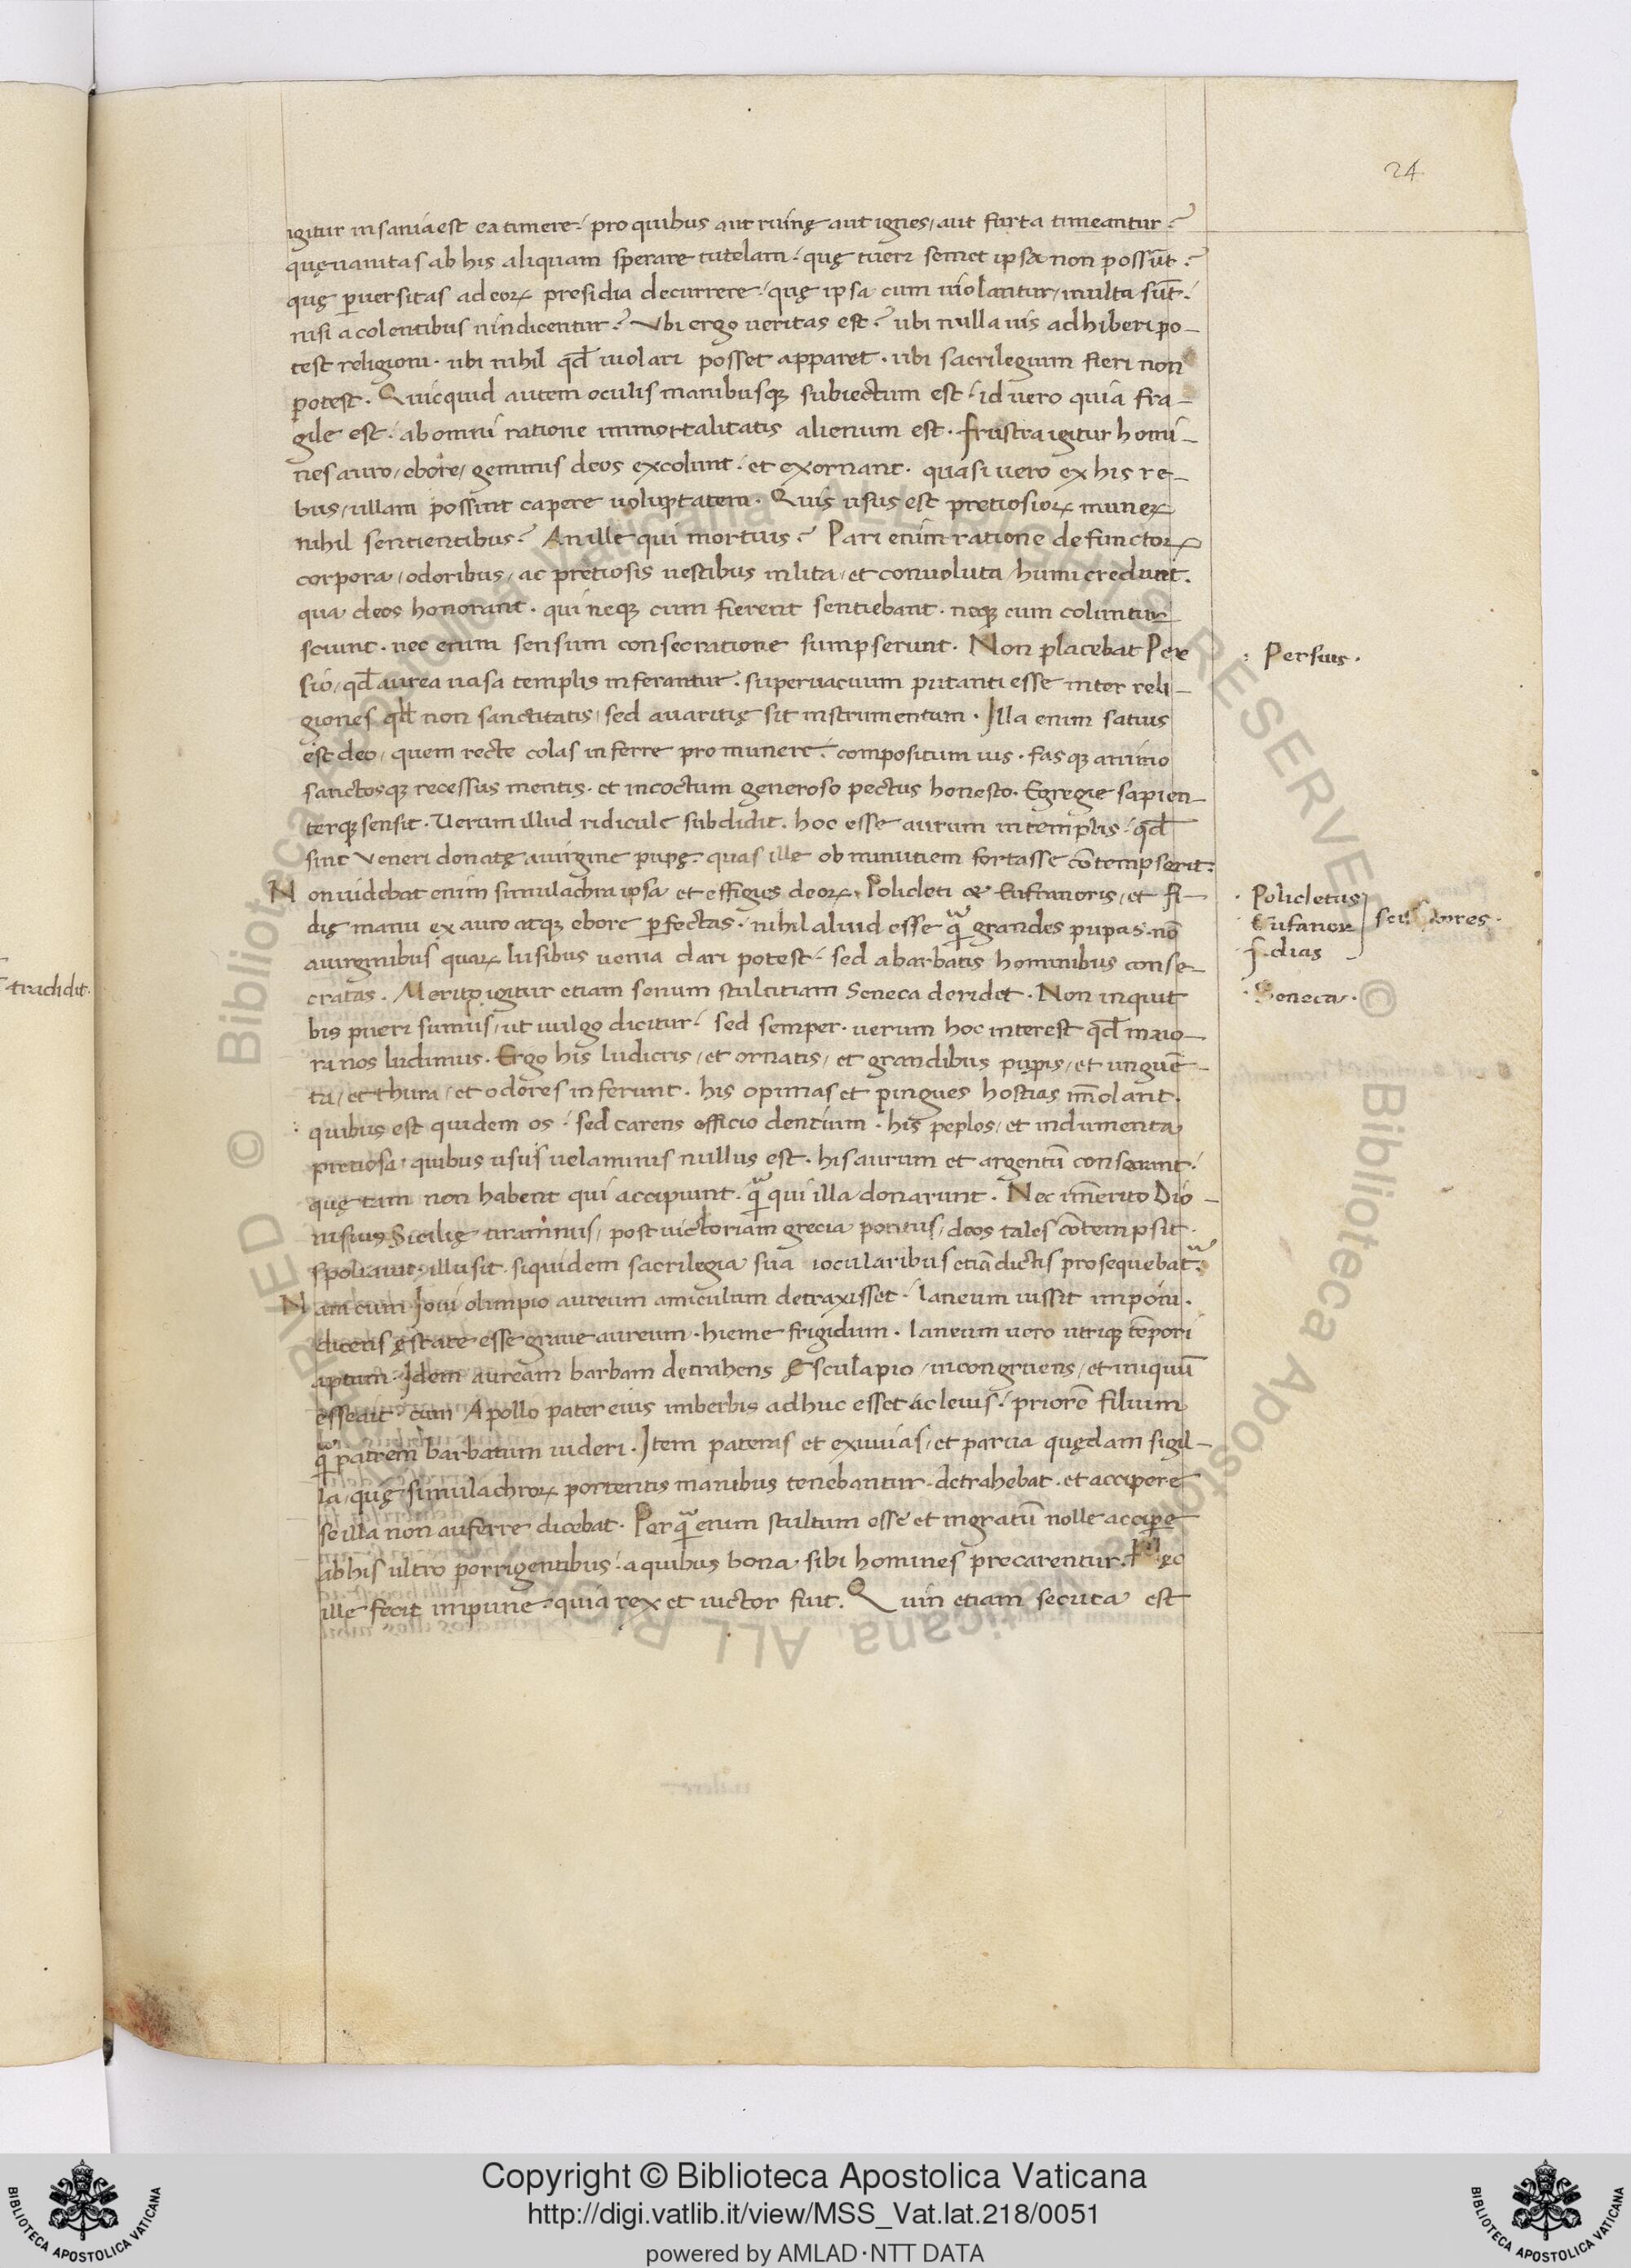 24
igitur insania est ea timere. pro quibus aut ruinę aut ignes, aut furta timeantur?
quę uanitas ab his aliquam sperare tutelam. quę tueri semet ipsa non possūt?
quę ꝑuersitas ad eoꝝ presidia decurrere. quę ipsa cum uiolantur, multa sūt.
nisi a colentibus uindicentur? Vbi ergo ueritas est? ubi nulla uis adhiberi po-
test religioni. ubi nihil qđ uiolari posset apparet. ubi sacrilegium fieri non
potest. Quicquid autem oculis manibusqꝫ subiectum est. id uero quia fra-
gile est. ab omni ratione immortalitatis alienum est. frustra igitur homi-
nes auro, ebore, gemmis deos excolunt. et exornant. quasi uero ex his re-
bus, ullam possint capere uoluptatem. Quis usus est pretiosioꝝ muneꝝ
nihil sentientibus? An ille qui mortuis? Pari enim ratione defunctoꝝ
corpora, odoribus, ac pretiosis uestibus inlita, et conuoluta, humi credunt.
qua deos honorant. qui neqꝫ cum fierent sentiebant. neqꝫ cum coluntur
sciunt. nec enim sensum consecratione sumpserunt. Non placebat Per
: Persius.
sio, qđ aurea uasa templis inferantur. superuacuum putanti esse inter reli-
giones qđ non sanctitatis, sed auaritię sit instrumentum. Illa enim satius
est deo, quem recte colas inferre pro munere. compositum ius. fasqꝫ animo
sanctosqꝫ recessus mentis. et incoctum generoso pectus honesto. Egregie sapien-
terqꝫ sensit. Verum illud ridicule subdidit. hoc esse aurum in templis. qđ
sint Veneri donatę a uirgine pupę. quas ille ob minutiem fortasse cōtempserit.
Non uidebat enim simulachra ipsa et effigies deoꝝ. Policleti et Eufranoris, et Fi-
· Policletus
dię manu ex auro atqꝫ ebore ꝑfectas. nihil aliud esse qᷓ grandes pupas. nō
· Eufanor
a uirginibus quaꝝ lusibus uenia dari potest. sed a barbatis hominibus conse-
· Fidias
cratas. Merito igitur etiam senum stultitiam Seneca deridet. Non inquit
· Seneca.
tradidit.
bis pueri sumus, ut uulgo dicitur. sed semper. uerum hoc interest qđ maio-
ra nos ludimus. Ergo his ludicris, et ornatis, et grandibus pupis, et unguē-
ta, et thura, et odores inferunt. his opimas et pingues hostias īmolant.
quibus est quidem os. sed carens officio dentium. his peplos, et indumenta
pretiosa. quibus usus uelaminis nullus est. his aurum et argentū consecrant.
quę tam non habent qui accipiunt. qᷓ qui illa donarunt. Nec īmerito Dio-
nisius Sicilię tirannus, post uictoriam grecia potitus, deos tales cōtempsit.
spoliauit. illusit. siquidem sacrilegia sua iocularibus etiā dictis prosequebat᷑.
Nam cum Ioui olimpio aureum amiculum detraxisset. laneum iussit imponi.
dicens ęstate esse graue aureum. hieme frigidum. laneum uero utriqꝫ tēpori
aptum. Idem auream barbam detrahens Esculapio, incongruens, et iniquū
esse ait. cum Apollo pater eius imberbis adhuc esset ac leuis. priorē filium
qᷓ patrem barbatum uideri. Item pateras et exuuias, et parua quędam sigil-
la, quę simulachroꝝ porrectis manibus tenebantur. detrahebat. et accipere
se illa non auferre dicebat. Perqᷓ enim stultum esse et ingratū nolle accipere
ab his ultro porrigentibus. a quibus bona sibi homines precarentur. Hęc
ille fecit impune. quia rex et uictor fuit. Quin etiam secuta est
© Biblioteca Apostolica Vaticana ALL RIGHTS RESERVED © Biblioteca Apostolica Vaticana ALL RIGHTS RESERVED
Copyright © Biblioteca Apostolica Vaticana
http://digi.vatlib.it/view/MSS_Vat.lat.218/0051
powered by AMLAD·NTT DATA
BIBLIOTECA APOSTOLICA VATICANA
BIBLIOTECA APOSTOLICA VATICANA